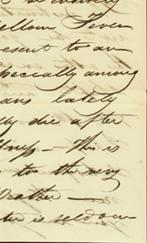 ellow Fever
esent to an
specially among
ans lately
ly die after
llness - This is
to the very
eather -
is seldom